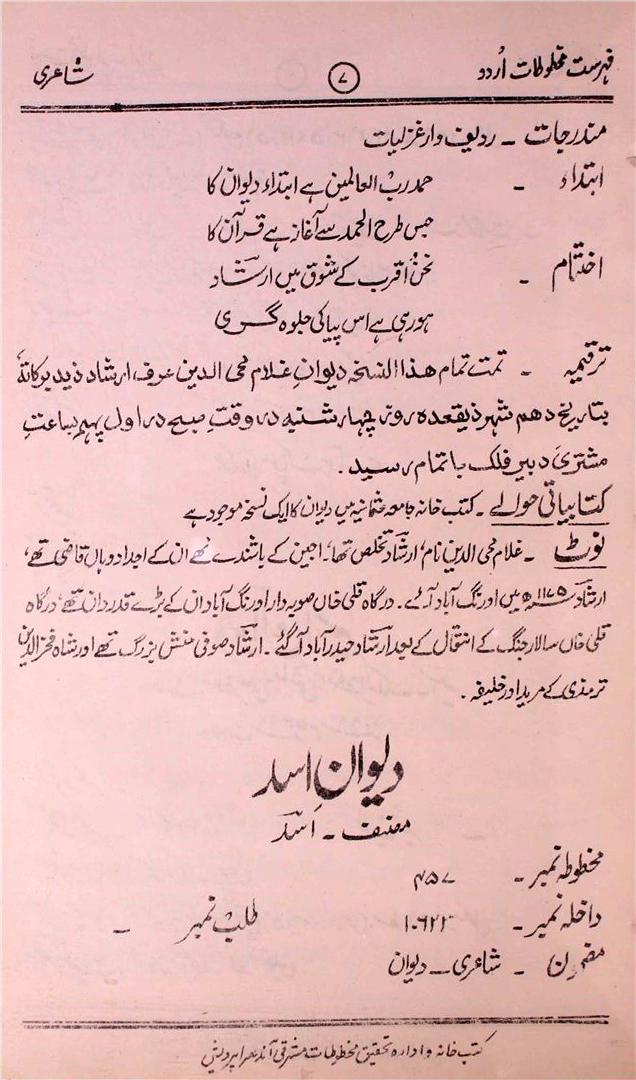 فہرست مخطوطات اُردو ۷ شاعری
مندرجات ۔ ردیف وار غزلیات
ابتداء ۔ حمد رب العالمین ہے ابتداء دیوان کا
جس طرح الحمد سے آغاز ہے قرآن کا
اختتام ۔ نحنُ اقرب کے شوق میں ارشاد
ہو رہی ہے اس پیا کی جلوہ گری
ترقیمہ ۔ تمت تمام ھذا النسخہ دیوانِ غلام محی الدین عرف ارشاد زید برکاتہٗ
بتاریخ دھم شہر ذیقعدہ روز چہار شنبہ در وقتِ صبح در اول پہر ساعتِ
مشتری دبیر فلک باتمام رسید ۔
کتابیاتی حوالے ۔ کتب خانہ جامعہ عثمانیہ میں دیوان کا ایک نسخہ موجود ہے
نوٹ ۔ غلام محی الدین نام، ارشاد تخلص تھا، اجین کے باشندے تھے ان کے اجداد وہاں قاضی تھے،
ارشاد سنہ ۱۱۷۵ھ میں اورنگ آباد آئے۔ درگاہ قلی خاں صوبہ دار اورنگ آباد ان کے بڑے قدر دان تھے، درگاہ
قلی خاں سالار جنگ کے انتقال کے بعد ارشاد حیدرآباد آگئے ۔ ارشاد صوفی منش بزرگ تھے اور شاہ فخر الدین
ترمذی کے مرید اور خلیفہ ۔
دیوان اسد
مصنف ۔ اَسَد
مخطوطہ نمبر ۔ ۴۵۷
داخلہ نمبر ۔ ۱۰۶۲۳ طلب نمبر ۔
مضمون ۔ شاعری ۔ دیوان
کتب خانہ و ادارہ تحقیق مخطوطات مشرقی آندھرا پردیش